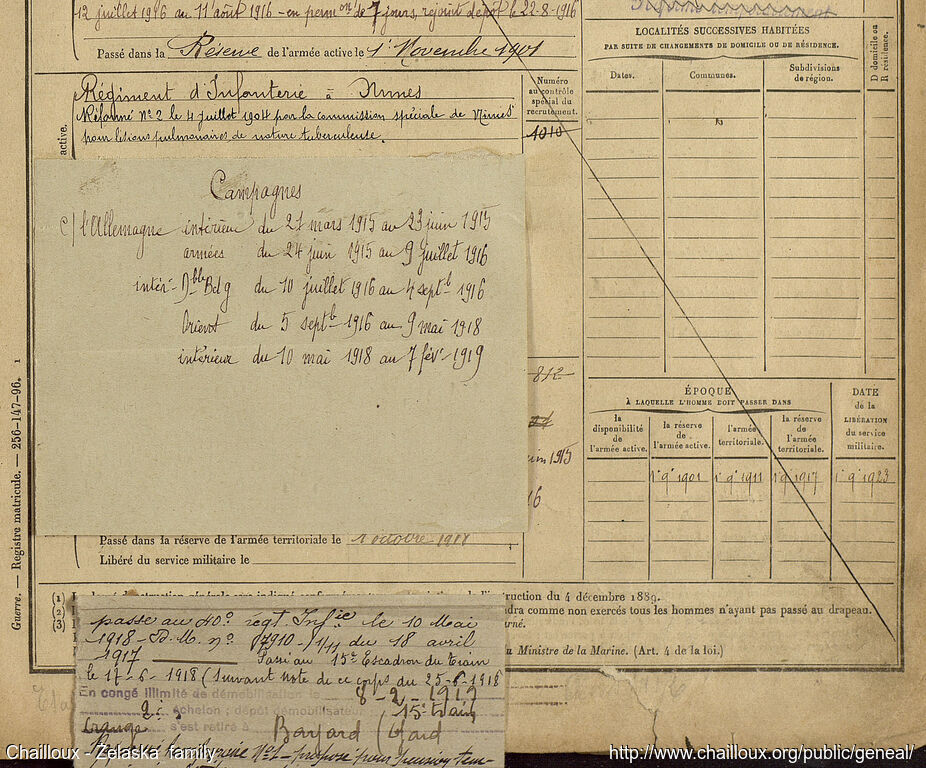 12 juillet 1916 au 11 août 1916 - en perm on de 7 jours, rejoint dépôt le 22-8-1916
Passé dans la Réserve de l'armée active le 1er Novembre 1901
Régiment d'Infanterie à Nimes
Réformé No 2 le 4 juillet 1904 par la commission spéciale de Nimes
pour lésions pulmonaires de nature tuberculeuse.
active.
Numéro
au contrôle
spécial du
recrutement.
1010
LOCALITÉS SUCCESSIVES HABITÉES
PAR SUITE DE CHANGEMENTS DE DOMICILE OU DE RÉSIDENCE.
Dates.
Communes.
Subdivisions
de région.
D domicile ou
R résidence.
Campagnes
c/ l'Allemagne intérieur du 21 mars 1915 au 23 juin 1915
armées du 24 juin 1915 au 9 juillet 1916
intér- Dble Belg du 10 juillet 1916 au 4 septb 1916
Orient du 5 septb 1916 au 9 mai 1918
intérieur du 10 mai 1918 au 7 fév. 1919
812
1915
16
ÉPOQUE
À LAQUELLE L'HOMME DOIT PASSER DANS
la
disponibilité
de
l'armée active.
la réserve
de
l'armée active.
l'armée
territoriale.
la réserve
de
l'armée
territoriale.
DATE
de la
LIBÉRATION
du service
militaire.
1 9 1901
1 9 1911
1 9 1917
1 9 1923
Passé dans la réserve de l'armée territoriale le 1 octobre 1917
Libéré du service militaire le
Guerre. — Registre matricule. — 256-147-96. 1
(1)
(2)
(3)
truction du 4 décembre 1889.
dra comme non exercés tous les hommes n'ayant pas passé au drapeau.
rné.
u Ministre de la Marine. (Art. 4 de la loi.)
passe au 40e régt Infie le 10 Mai
1918 - D.M. no 17910 - 1/11 du 18 avril
1917 Passé au 15e Escadron du Train
le 17-6-1918 (Suivant note de ce corps du 25-6-1918
En congé illimité de démobilisation le 8-2-1919
échelon; dépôt démobilisateur 15e train
s'est retiré à Barjard (Gard
Chailloux - Zelaska family
http://www.chailloux.org/public/geneal/